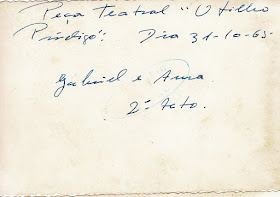 Peça Teatral "O filho
Pródigo". Dia 31-10-65.
Gabriel e Aura.
2º Ato.